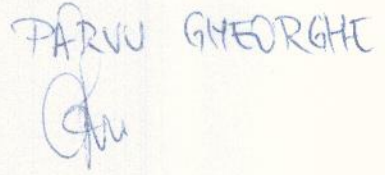 PARVU GHEORGHE